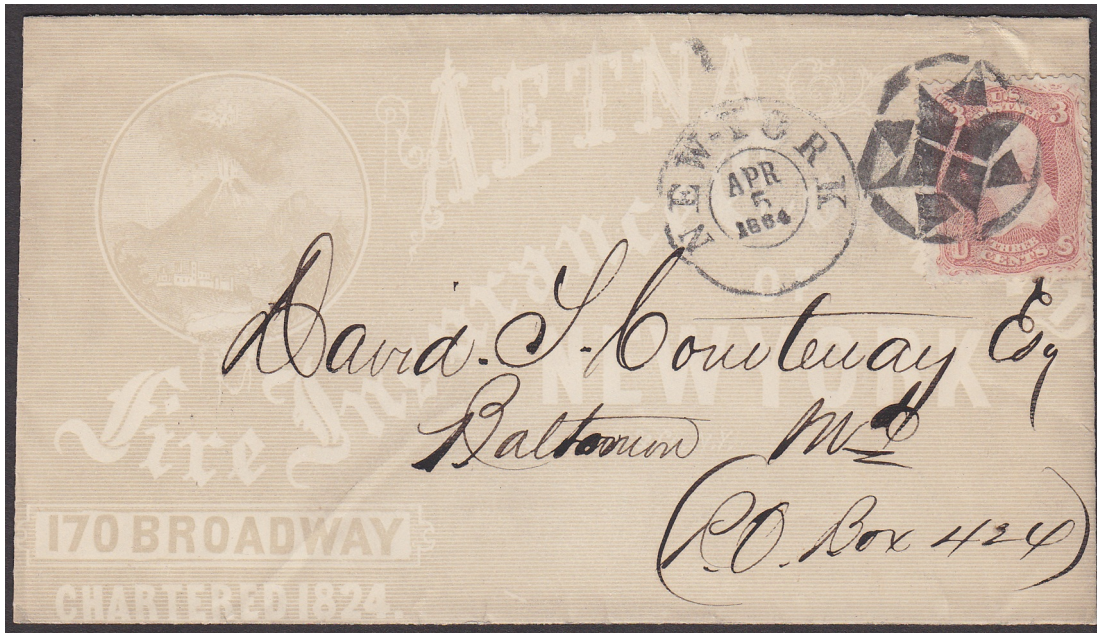 AETNA
Fire Insurance
OF
NEW YORK
170 BROADWAY
CHARTERED 1824.
NEW-YORK
APR
5
1864
U S
3
U CENTS S
David. S. Courtenay Esq
Baltimore Md
(P.O. Box 424)